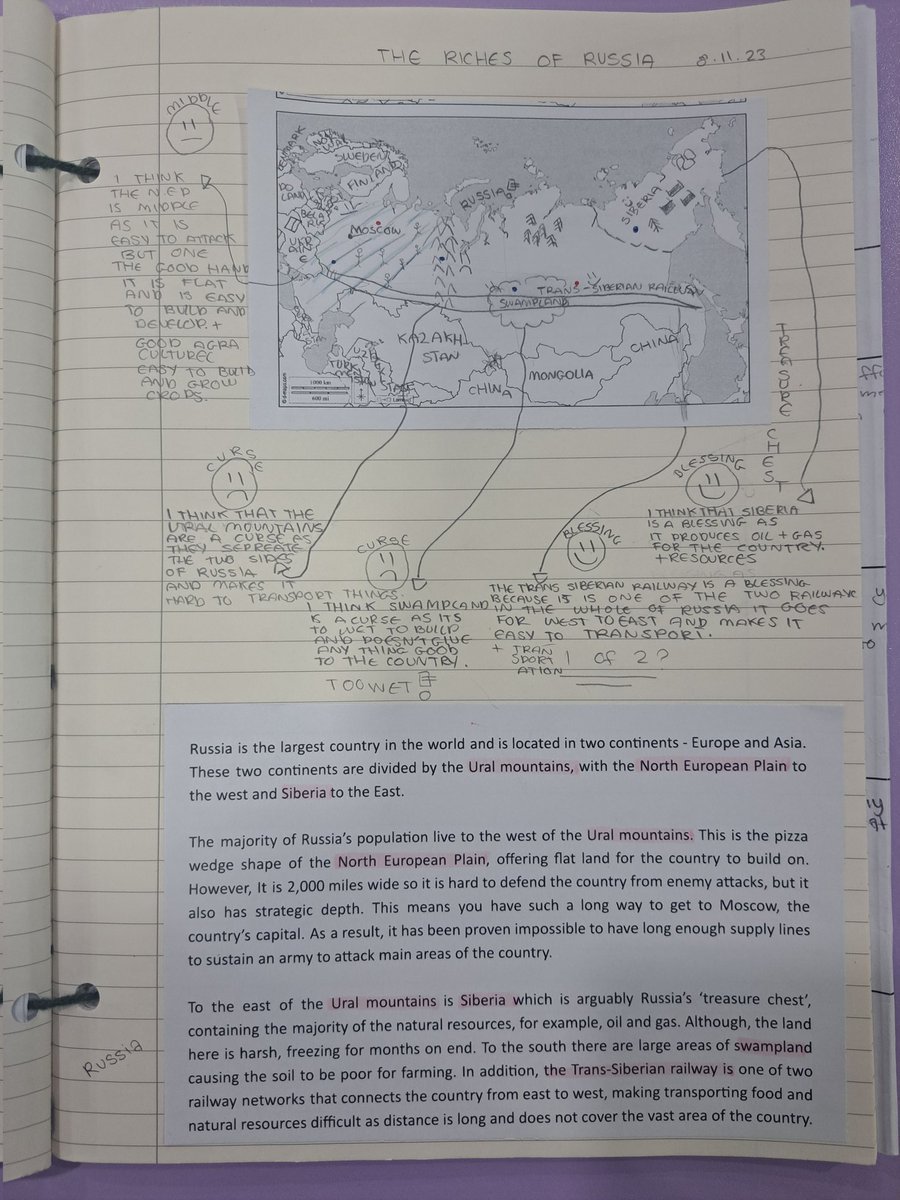 THE RICHES OF RUSSIA 8.11.23
MIDDLE
I THINK
THE NEP
IS MIDDLE
AS IT IS
EASY TO ATTACK
BUT ONE
THE GOOD HAND
IT IS FLAT
AND IS EASY
TO BUILD AND
DEVELOP. +
GOOD AGRA
CULTUREL
EASY TO BUILD
AND GROW
CROPS.
SWEDEN
FINLAND
RUSSIA
SIBERIA
MOSCOW
UKRAINE
TRANS-SIBERIAN RAILWAY
SWAMPLAND
KAZAKH
STAN
CHINA
MONGOLIA
CHINA
1000 km
600 mi
TREASURE CHEST
CURSE
I THINK THAT THE
URAL MOUNTAINS
ARE A CURSE AS
THEY SEPREATE
THE TWO SIDES
OF RUSSIA.
AND MAKES IT
HARD TO TRANSPORT THINGS.
CURSE
I THINK SWAMPLAND
IS A CURSE AS ITS
TO WET TO BUILD
AND DOESN'T GIVE
ANY THING GOOD
TO THE COUNTRY.
TOO WET
BLESSING
THE TRANS SIBERIAN RAILWAY IS A BLESSING
BECAUSE IT IS ONE OF THE TWO RAILWAYS
IN THE WHOLE OF RUSSIA IT GOES
FOR WEST TO EAST AND MAKES IT
EASY TO TRANSPORT.
+ TRAN
SPORT
ATION
1 of 2?
BLESSING
I THINK THAT SIBERIA
IS A BLESSING AS
IT PRODUCES OIL + GAS
FOR THE COUNTRY.
+RESOURCES
Russia is the largest country in the world and is located in two continents - Europe and Asia.
These two continents are divided by the Ural mountains, with the North European Plain to
the west and Siberia to the East.
The majority of Russia's population live to the west of the Ural mountains. This is the pizza
wedge shape of the North European Plain, offering flat land for the country to build on.
However, It is 2,000 miles wide so it is hard to defend the country from enemy attacks, but it
also has strategic depth. This means you have such a long way to get to Moscow, the
country's capital. As a result, it has been proven impossible to have long enough supply lines
to sustain an army to attack main areas of the country.
To the east of the Ural mountains is Siberia which is arguably Russia's 'treasure chest',
containing the majority of the natural resources, for example, oil and gas. Although, the land
here is harsh, freezing for months on end. To the south there are large areas of swampland
causing the soil to be poor for farming. In addition, the Trans-Siberian railway is one of two
railway networks that connects the country from east to west, making transporting food and
natural resources difficult as distance is long and does not cover the vast area of the country.
RUSSIA